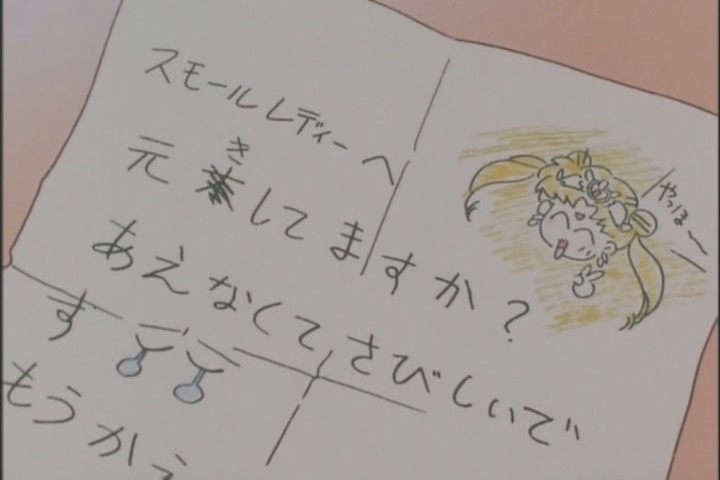 スモールレディーへ
元きしてますか？
あえなくてさびしいで
す
もうかえ
やっほ〜